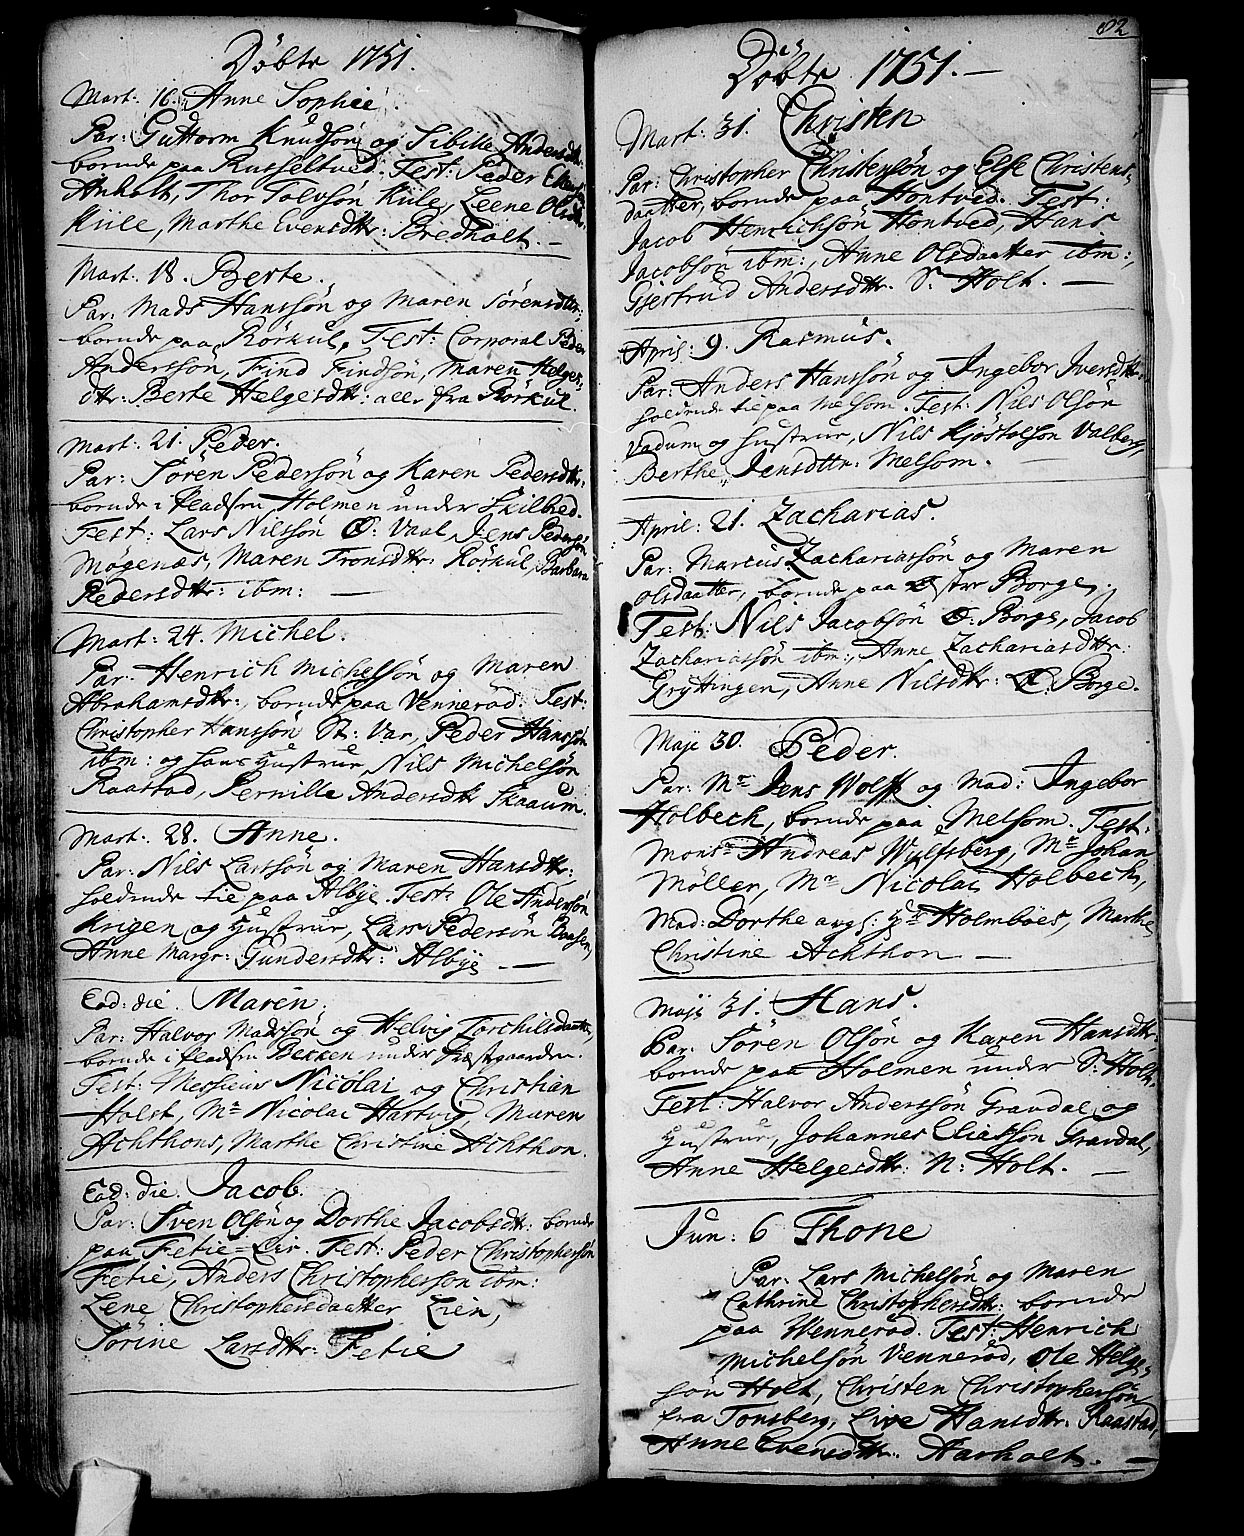 Döbte 1751.
Mart: 16. Anne Sophie.
Par: Guttorm Knudsön og Sibille Andersdtr:
boende paa Russeltved. Test: Peder
Anholt, Thor Tolvsön Kiile, Leene Olsdtr:
Kiile, Marthe Evensdtr: Bredholt. —
Mart: 18. Berte.
Par: Mads Hanssön og Maren Sörensdtr:
boende paa Rörkul, Test: Corporal Peder
Anderssön, Find Findsön, Maren Helges-
dtr: Berte Helgesdtr: alle fra Rörkul.
Mart: 21. Peder.
Par: Sören Pedersön og Karen Pedersdtr:
boende i Pladsen Holmen under Skilbred.
Test: Lars Nilssön Ö: Vaal, Jens Pedersön
Mögenæs, Maren Tronsdtr: Rörkul, Barbara
Pedersdtr: ibm: —
Mart: 24. Michel.
Par: Henrich Michelsön og Maren
Abrahamsdtr:, boende paa Venneröd. Test:
Christopher Hanssön St: Var, Peder Hanssön
ibm: og hans Hustrue, Nils Michelsön
Raastad, Pernille Andersdtr Skaaum.
Mart: 28. Anne.
Par: Nils Larssön og Maren Hansdtr:
holdende til paa Albye. Test: Ole Andersön
Krigen og Hustrue, Lars Pedersön Baasen,
Anne Margr: Gundersdtr: Albye —
Eod: die. Maren.
Par: Halvor Madssön og Helvig Torchilsdaatter,
boende i Pladsen Becken under Præstgaarden.
Test: Messieurs Nicolai og Christian
Holst, Mr Nicolai Hartvig, Maren
Achthons, Marthe Christine Achthon.
Eod: die. Jacob.
Par: Sven Olsön og Dorthe Jacobsdtr: boende
paa Fetie=Eie. Test: Peder Christophersön
Fetie, Anders Christophersön ibm:
Lene Christophersdaatter Lien,
Sörine Larsdtr: Fetie
82
Döbte 1751. —
Mart: 31. Christen
Par: Christopher Christensön og Else Christens-
daatter, boende paa Hontved. Test:
Jacob Henrichsön Hontved, Hans
Jacobsön ibm:, Anne Olsdaatter ibm:,
Gjertrud Andersdtr. S: Holt. —
April: 9. Rasmus.
Par: Anders Hanssön og Ingebor Iversdtr:
holdende til paa Melsom. Test: Nils Olsön
Vadum og Hustrue, Nils Kjöstolsön Valberg,
Berthe Jensdttr: Melsom.
April: 21. Zacharias.
Par: Marcus Zachariassön og Maren
Olsdaatter, boende paa Östre Borge.
Test: Nils Jacobsön Ö: Borge, Jacob
Zachariassön ibm:, Anne Zachariasdtr:
Gryttingen, Anne Nilsdtr: Ö: Borge.
Maji 30. Peder.
Par: Mr Jens Wolff og Mad: Ingebor
Holbeck, boende paa Melsom. Test:
Monsr Andreas Wulfsberg, Mr Johan
Möller, Mr Nicolai Holbeck,
Mad: Dorthe avgs: Hr Holmboes, Marthe
Christine Achthon —
Maji 31. Hans.
Par: Sören Olsön og Karen Hansdtr:
boende paa Holmen under S: Holt.
Test: Halvor Anderssön Gravdal og
Hustrue, Johannes Eliassön Gravdal,
Anne Helgesdtr: N: Holt. —
Jun: 6 Thone
Par: Lars Michelsön og Maren
Cathrine Christophersdtr: boende
paa Wenneröd. Test: Henrich
Michelsön Venneröd, Ole Helge-
sön Holt, Christen Christophersön
fra Tonsberg, Live Hansdtr: Raastad,
Anne Evensdtr: Aarholt. —